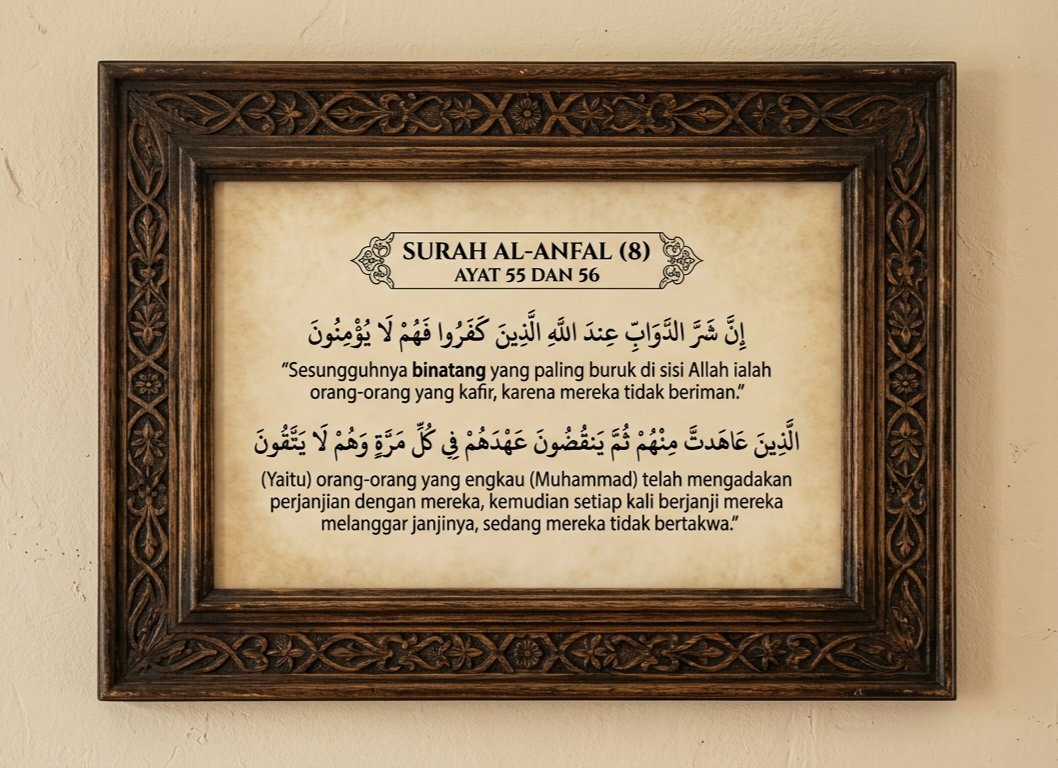 SURAH AL-ANFAL (8)
AYAT 55 DAN 56
إِنَّ شَرَّ الدَّوَابِّ عِندَ اللَّهِ الَّذِينَ كَفَرُوا فَهُمْ لَا يُؤْمِنُونَ
"Sesungguhnya binatang yang paling buruk di sisi Allah ialah
orang-orang yang kafir, karena mereka tidak beriman."
الَّذِينَ عَاهَدتَّ مِنْهُمْ ثُمَّ يَنقُضُونَ عَهْدَهُمْ فِي كُلِّ مَرَّةٍ وَهُمْ لَا يَتَّقُونَ
(Yaitu) orang-orang yang engkau (Muhammad) telah mengadakan
perjanjian dengan mereka, kemudian setiap kali berjanji mereka
melanggar janjinya, sedang mereka tidak bertakwa."